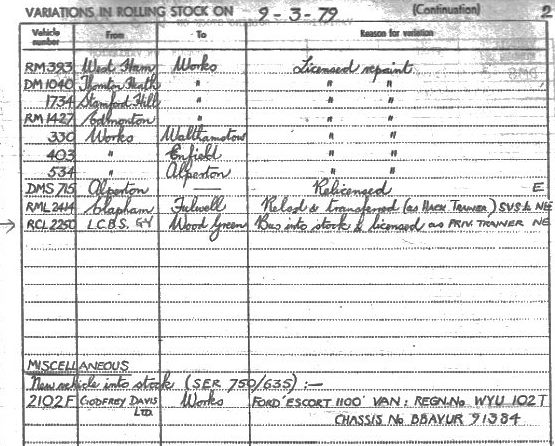 VARIATIONS IN ROLLING STOCK ON 9-3-79 (Continuation) 2
Vehicle number From To Reason for variation
RM393 West Ham Works Licensed repaint
DM1040 Thornton Heath " " "
1734 Stamford Hill " " "
RM1427 Edmonton " " "
330 Works Walthamstow " "
403 " Enfield " "
534 " Alperton " "
DMS 715 Alperton — Relicensed E
RML2414 Clapham Fulwell Relsd & transferred (as Hack Trainer) SVS to NE
→ RCL2250 L.C.B.S. GY Wood Green Bus into stock & licensed as PRIV. TRAINER NE
MISCELLANEOUS
New vehicle into stock (SER 750/635) :—
2102F GODFREY DAVIS LTD. Works FORD 'ESCORT 1100' VAN: REGN. No WYU 102T
CHASSIS No BBAVUR 91384